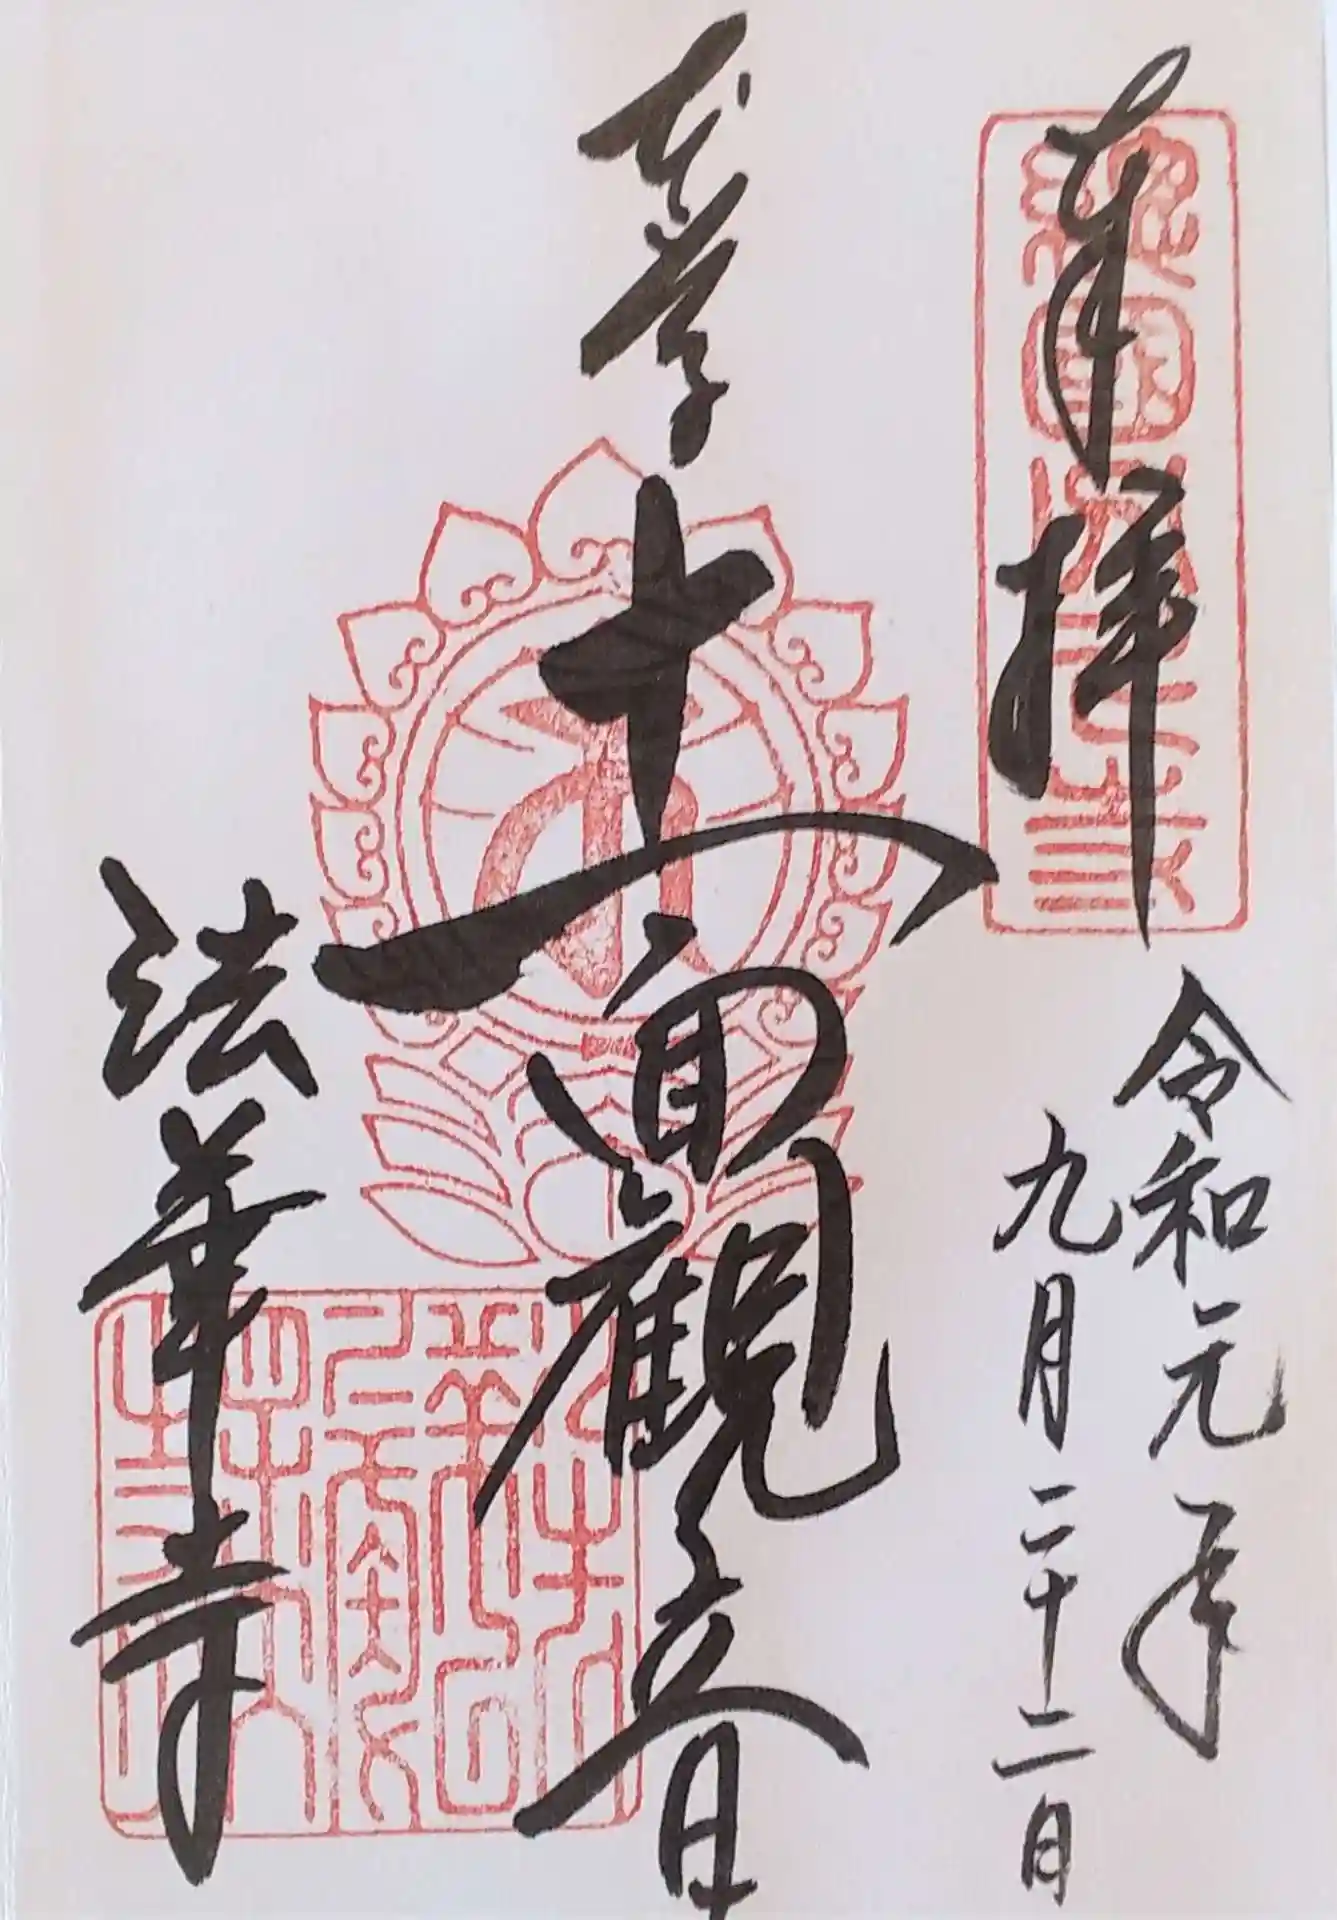 奉拝
令和元年
九月二十二日
本尊
十一面観音
法華寺